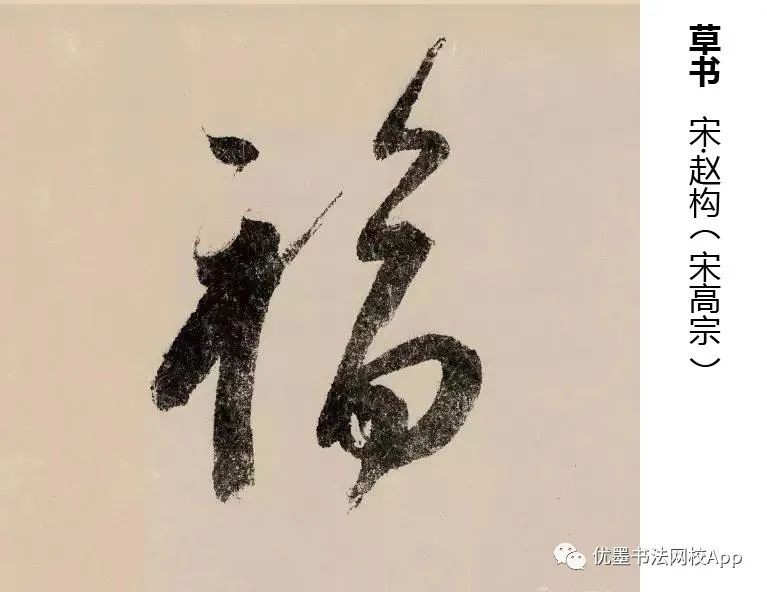 福
草书 宋·赵构（宋高宗）
优墨书法网校App